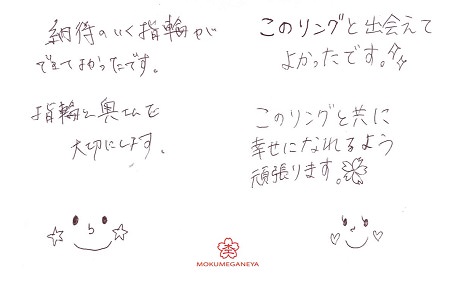 納得のいく指輪が
できてよかったです。
指輪と奥さんを
大切にします。
このリングと出会えて
よかったです。
このリングと共に
幸せになれるよう
頑張ります。
MOKUMEGANEYA